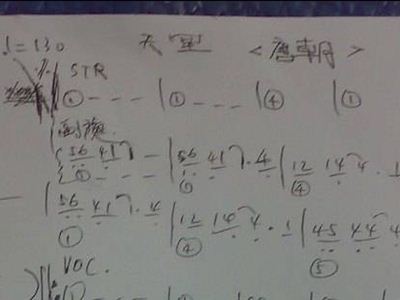 ♩=130 天堂 <唐朝>
STR
① - - - | ① - - - | ④ | ①
副旋
56 41 - - | 56 41 · 4 | 12 14 4 · 1
① - - - ① ④
56 41 · 4 | 12 14 4 · 1 | 45 44 4
① ④ ⑤
VOC.